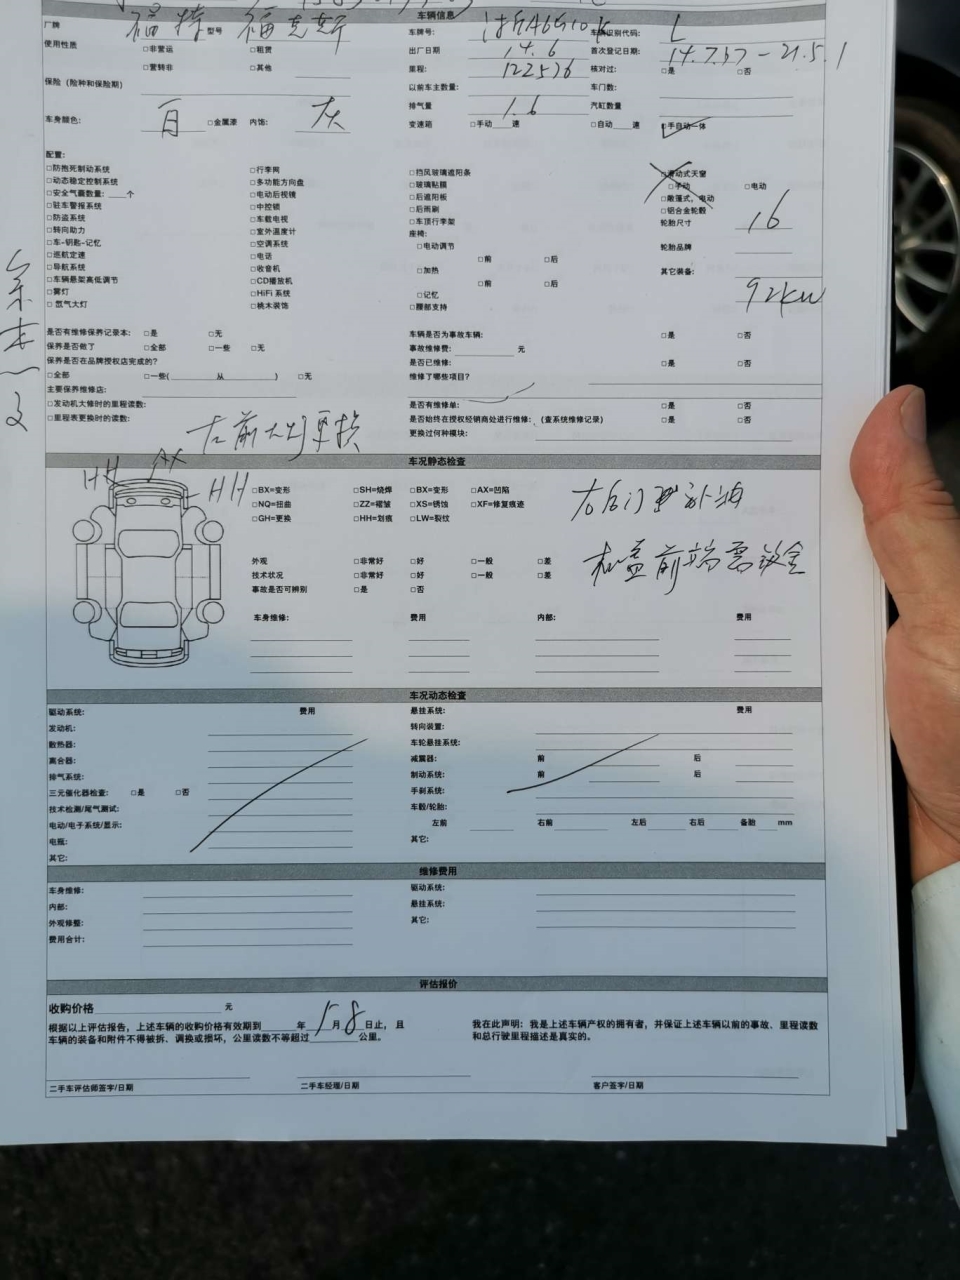 车辆信息
厂牌 福特 型号 福克斯 车牌号: 车辆识别代码: L
使用性质 □非营运 □租赁 出厂日期 14.6 首次登记日期:
□营转非 □其他 里程: 122576 核对过: □是 □否
保险（险种和保险期） 以前车主数量: 车门数:
排气量 1.6 汽缸数量
车身颜色: 白 □金属漆 内饰: 灰 变速箱 □手动 速 □自动 速 □手自动一体
配置:
□防抱死制动系统 □行李网 □挡风玻璃遮阳条 □滑动式天窗
□动态稳定控制系统 □多功能方向盘 □玻璃贴膜 □手动 □电动
□安全气囊数量: 个 □电动后视镜 □后遮阳板 □敞篷式, 电动
□驻车警报系统 □中控锁 □后雨刷 □铝合金轮毂
□防盗系统 □车载电视 □车顶行李架 轮胎尺寸 16
□转向助力 □室外温度计 座椅:
□车-钥匙-记忆 □空调系统 □电动调节 轮胎品牌
□巡航定速 □电话 □前 □后
□导航系统 □收音机 □加热 其它装备:
□车辆悬架高低调节 □CD播放机 □前 □后
□雾灯 □HiFi 系统 □记忆 92kw
□氙气大灯 □桃木装饰 □腰部支持
是否有维修保养记录本: □是 □无 车辆是否为事故车辆: □是 □否
保养是否做了 □全部 □一些 □无 事故维修费: 元
保养是否在品牌授权店完成的? 是否已维修: □是 □否
□全部 □一些( 从 ) □无 维修了哪些项目?
主要保养维修店:
□发动机大修时的里程读数: 是否有维修单: □是 □否
□里程表更换时的读数: 是否始终在授权经销商处进行维修: (查系统维修记录) □是 □否
左前大灯更换 更换过何种模块:
车况静态检查
HH AX HH
□BX=变形 □SH=烧焊 □BX=变形 □AX=凹陷
□NQ=扭曲 □ZZ=褶皱 □XS=锈蚀 □XF=修复痕迹
□GH=更换 □HH=划痕 □LW=裂纹
右后门
机盖前端需钣金
外观 □非常好 □好 □一般 □差
技术状况 □非常好 □好 □一般 □差
事故是否可辨别 □是 □否
车身维修: 费用 内部: 费用
车况动态检查
驱动系统: 费用 悬挂系统: 费用
发动机: 转向装置:
散热器: 车轮悬挂系统:
离合器: 减震器: 前 后
排气系统: 制动系统: 前 后
三元催化器检查: □是 □否 手刹系统:
技术检测/尾气测试: 车毂/轮胎:
电动/电子系统/显示: 左前 右前 左后 右后 备胎 mm
电瓶: 其它:
其它:
维修费用
车身维修: 驱动系统:
内部: 悬挂系统:
外观修整: 其它:
费用合计:
评估报价
收购价格 元
根据以上评估报告, 上述车辆的收购价格有效期到 年 月 8 日止, 且
车辆的装备和附件不得被拆、调换或损坏, 公里读数不等超过 公里。
我在此声明: 我是上述车辆产权的拥有者, 并保证上述车辆以前的事故、里程读数
和总行驶里程描述是真实的。
二手车评估师签字/日期 二手车经理/日期 客户签字/日期